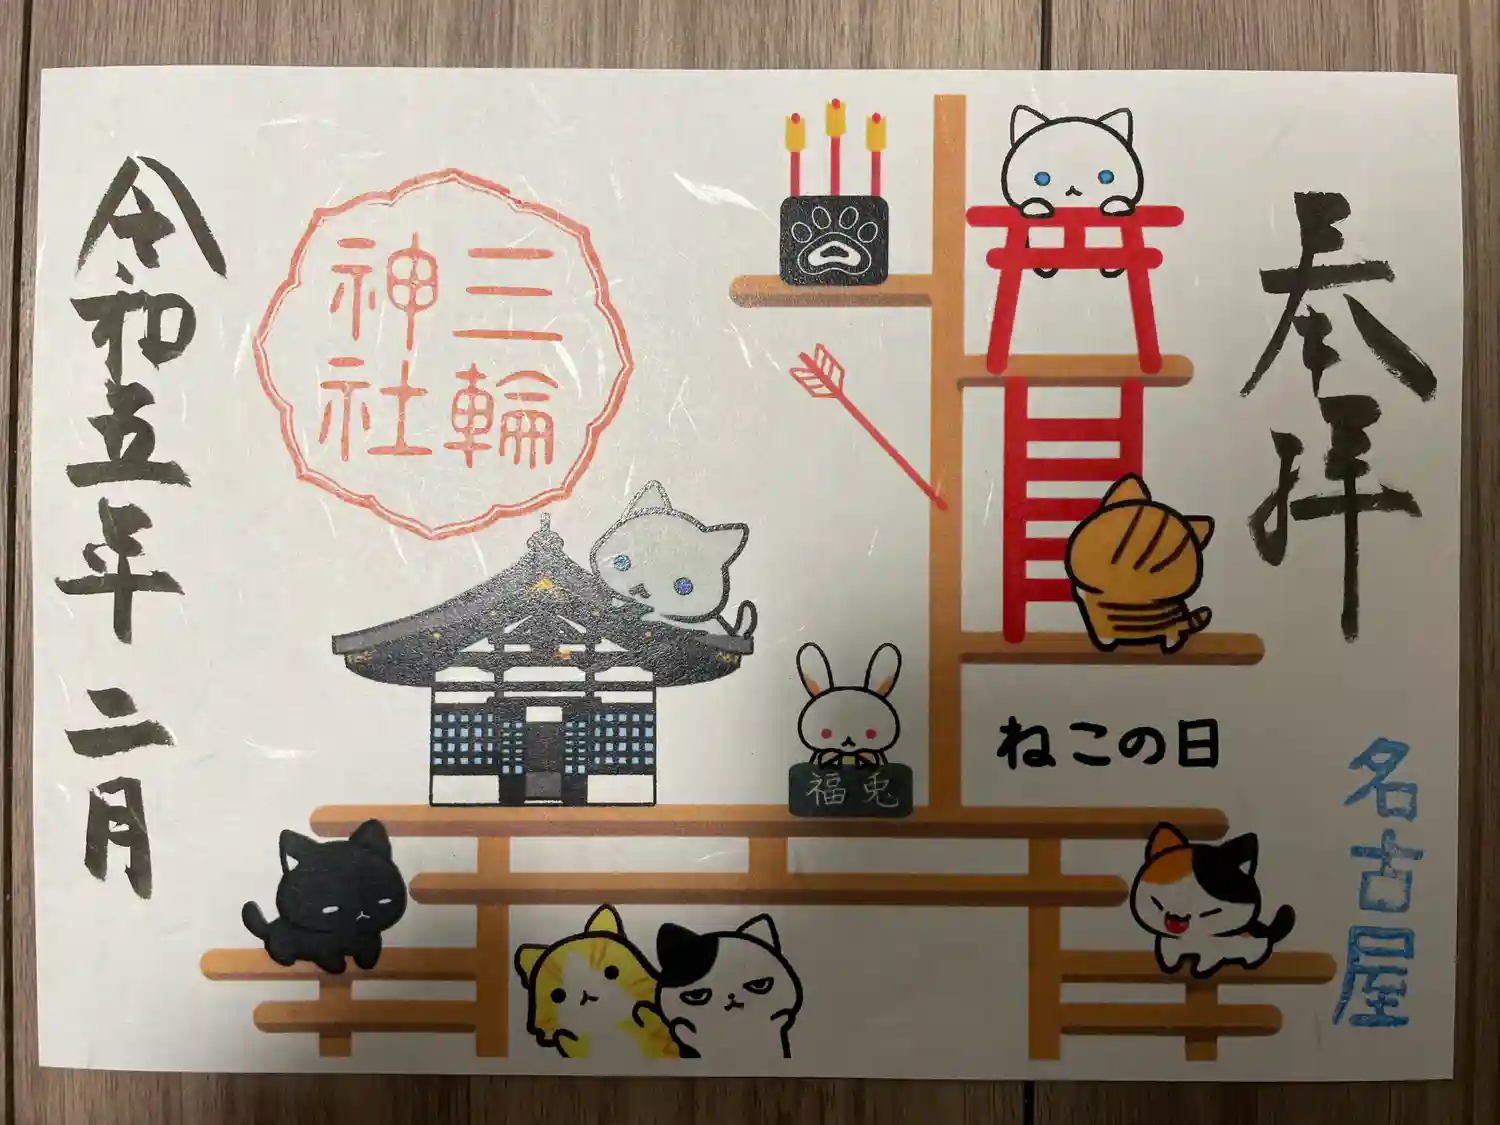 奉拝
名古屋
ねこの日
福兎
三輪
神社
令和五年二月